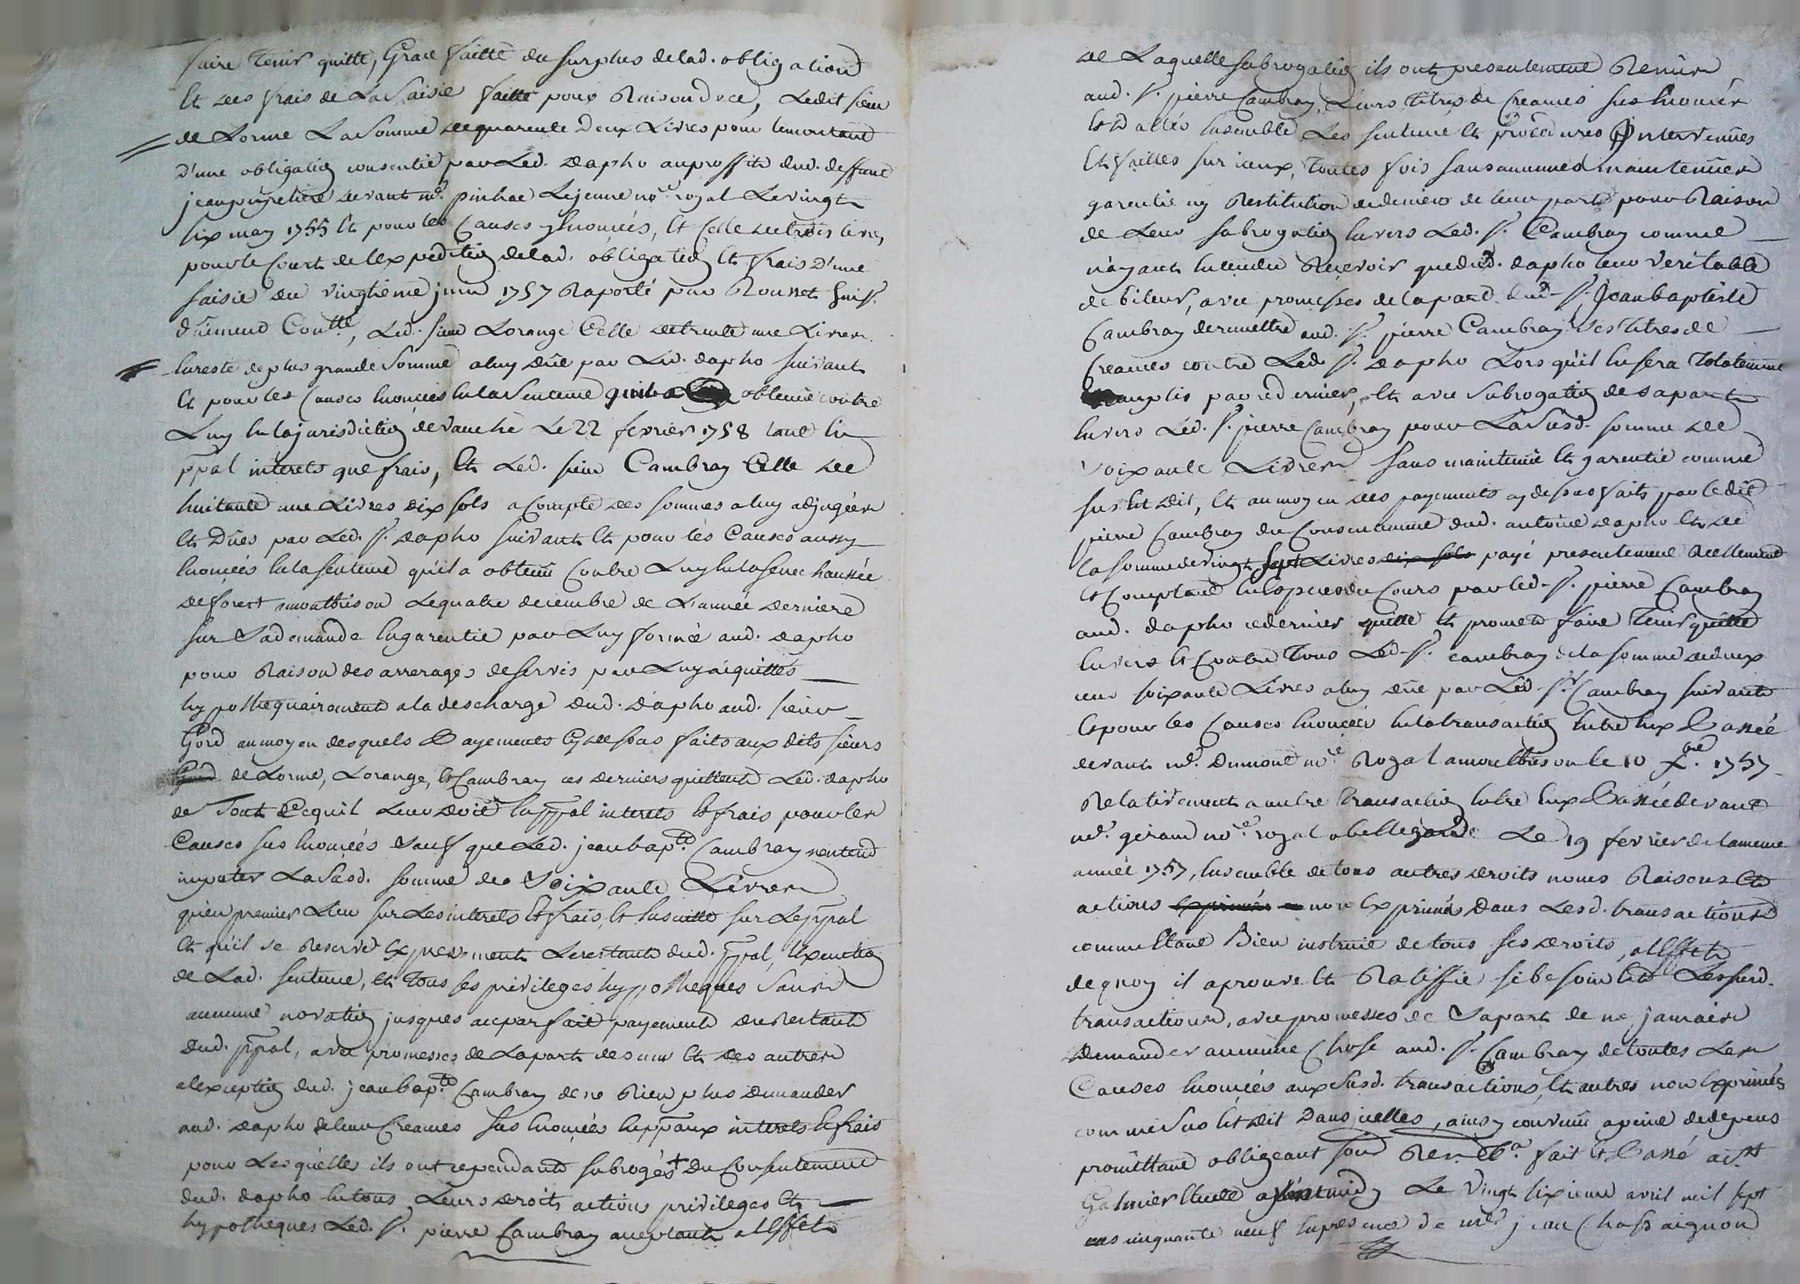 faire tenir quitte, Grace faitte du surplus delad. obligation
Et des frais de La Saisie faitte pour Raison d'ice, Ledit sieur
de Lorme La Somme de quarente deux Livres pour le montant
d'une obligation consentie par Led. dapho au proffit dud. deffunt
jean devant me. pinhac Lejeune nore. royal Levingt
six may 1755 Et pour les Causes y Enoncées, Et Celle de trois livres
pour le Court de lexpedition delad. obligation Et frais d'une
saisie du vingtieme juin 1757 Raporté par Rousset huissr.
, Led. sieur Lorange Celle de trente une Livres
En reste de plus grande Somme a luy düe par Led. dapho suivant
Et pour les Causes Enoncées En la Sentence quil a obtenue contre
Luy En la jurisdiction de vauche Le 22 fevrier 1758 tant En
ppal interets que frais, Et Led. sieur Cambray Celle de
huitante une Livres dix sols a Compte des sommes a luy adjugées
Et Dües par Led. Sr. dapho suivant Et pour les Causes aussy
Enoncées En la sentence qu'il a obtenu Contre Luy En la senechaussée
de forest a montbrison Le quatre decembre de L'année derniere
sur Sa demande En garentie par Luy formée aud. dapho
pour Raison des arrerages de servis par Luy aquittés
hypothequairement a la descharge dud. dapho aud. sieur
Gord au moyen desquels Payements cy dessus faits aux dits sieurs
de Lorme, Lorange, Et Cambray ces derniers quittent Led. dapho
de Tout Ce quil Leur doit En ppal interets Et frais pour les
Causes sus Enoncées sauf que Led. jean bapte. Cambray n'entend
imputer La susd. somme de Soixante Livres
qu'en premier Lieu sur Les interets Et frais, Et Ensuitte sur Le ppal
Et qu'il se Reserve Expressement Le restant dud. ppal, Execution
de Lad. sentence, Et tous ses privileges hypotheques Sans
aucune novation jusques au parfait payement du Restant
dud. ppal, avec promesses de La part des uns Et des autres
a lexception dud. jean bapte. Cambray de ne Rien plus demander
aud. dapho de leur Creances sus Enoncées En ppaux interets Et frais
pour Lesquelles ils ont cependant subrogés + Du Consentement
dud. dapho En tous Leurs droits actions privileges Et
hypotheques Led. Sr. pierre Cambray acceptant a L'Effet
de Laquelle subrogation ils ont presentement Remis
aud. Sr. pierre Cambray, Leurs titres de Creances sus Enoncés
Ensemble Les sentence Et procedures Intervenues
Et faittes sur iceux, toutes fois sans aucune maintenüe
garentie ny Restitution de deniers de leur part pour Raison
de Leur subrogation Envers Led. Sr. Cambray comme
n'ayant Entendu Recevoir que dud. dapho leur veritable
debiteur, avec promesses de la part dud. Sr. Jean baptiste
Cambray de remettre aud. Sr. pierre Cambray Ses titres de
Creances contre Led. Sr. dapho Lors qu'il En sera totalement
par ce dernier, Et avec Subrogation de Sa part
Envers Led. Sr. pierre Cambray pour La Susd. somme de
Soixante Livres Sans maintenüe Et garentie comme
sus Est dit, Et au moyen des payements cy dessus faits par ledit
pierre Cambray du Consentement dud. antoine dapho Et de
la somme de vingt sept Livres dix sols payé presentement Reellement
Et Comptant En Especes du Cours par led. Sr. pierre Cambray
aud. dapho ce dernier quitte Et promet faire tenir quitte
Envers Et Contre tous Led. Sr. Cambray de la somme de deux
cens soixante Livres a luy düe par Led. Sr. Cambray suivant
Et pour les Causes Enoncées En la transaction Entre Eux Passée
devant me. dumont nore. Royal a montbrison le 10 Xbre. 1757
Relativement a autre transaction Entre Eux Passée devant
me. giraud nore. royal a bellegarde Le 19 fevrier de la meme
année 1757, Ensemble de tous autres droits noms Raisons Et
actions exprimés non Exprimés dans Lesd. transactions
comme Etant Bien instruit de tous ses droits, a L'Effet
de quoy il aprouve Et Ratiffie si besoin Est Les susd.
transactions, avec promesses de Sa part de ne jamais
Demander aucune Chose aud. Sr. Cambray de toutes Les
Causes Enoncées aux susd. transactions, Et autres non Exprimés
comme Sus Est dit Dans icelles, ainsy convenu a peine de depens
promettant obligeant soub Ren. fait Et Passé a St
Galmier Etude apres midy Le Vingt sixieme avril mil sept
cens cinquante neuf En presence de me. jean Chassaignon